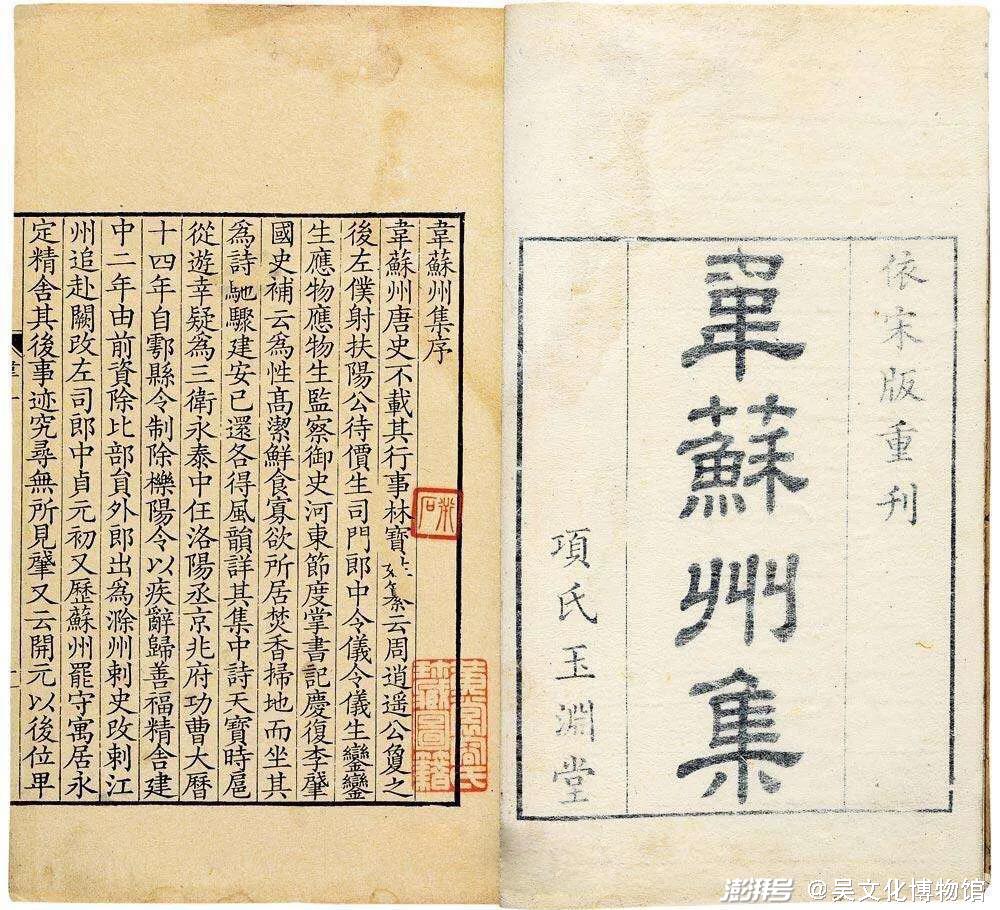 依宋版重刊
韋蘇州集
項氏玉淵堂
韋蘇州集序
韋蘇州唐史不載其行事林寶姓纂云周逍遥公敻之
後左僕射扶陽公待價生司門郎中令儀令儀生鑾鑾
生應物應物生監察御史河東節度掌書記慶復李肇
國史補云為性髙潔鮮食寡欲所居焚香掃地而坐其
為詩馳驟建安已還各得風韻詳其集中詩天寶時扈
從遊幸疑為三衛永泰中任洛陽丞京兆府功曹大曆
十四年自鄠縣令制除櫟陽令以疾辭歸善福精舎建
中二年由前資除比部貟外郎出為滁州刺史改刺江
州追赴闕改左司郎中貞元初又歷蘇州罷守寓居永
定精舎其後事迹究尋無所見肇又云開元以後位卑
澎湃号 @吴文化博物馆